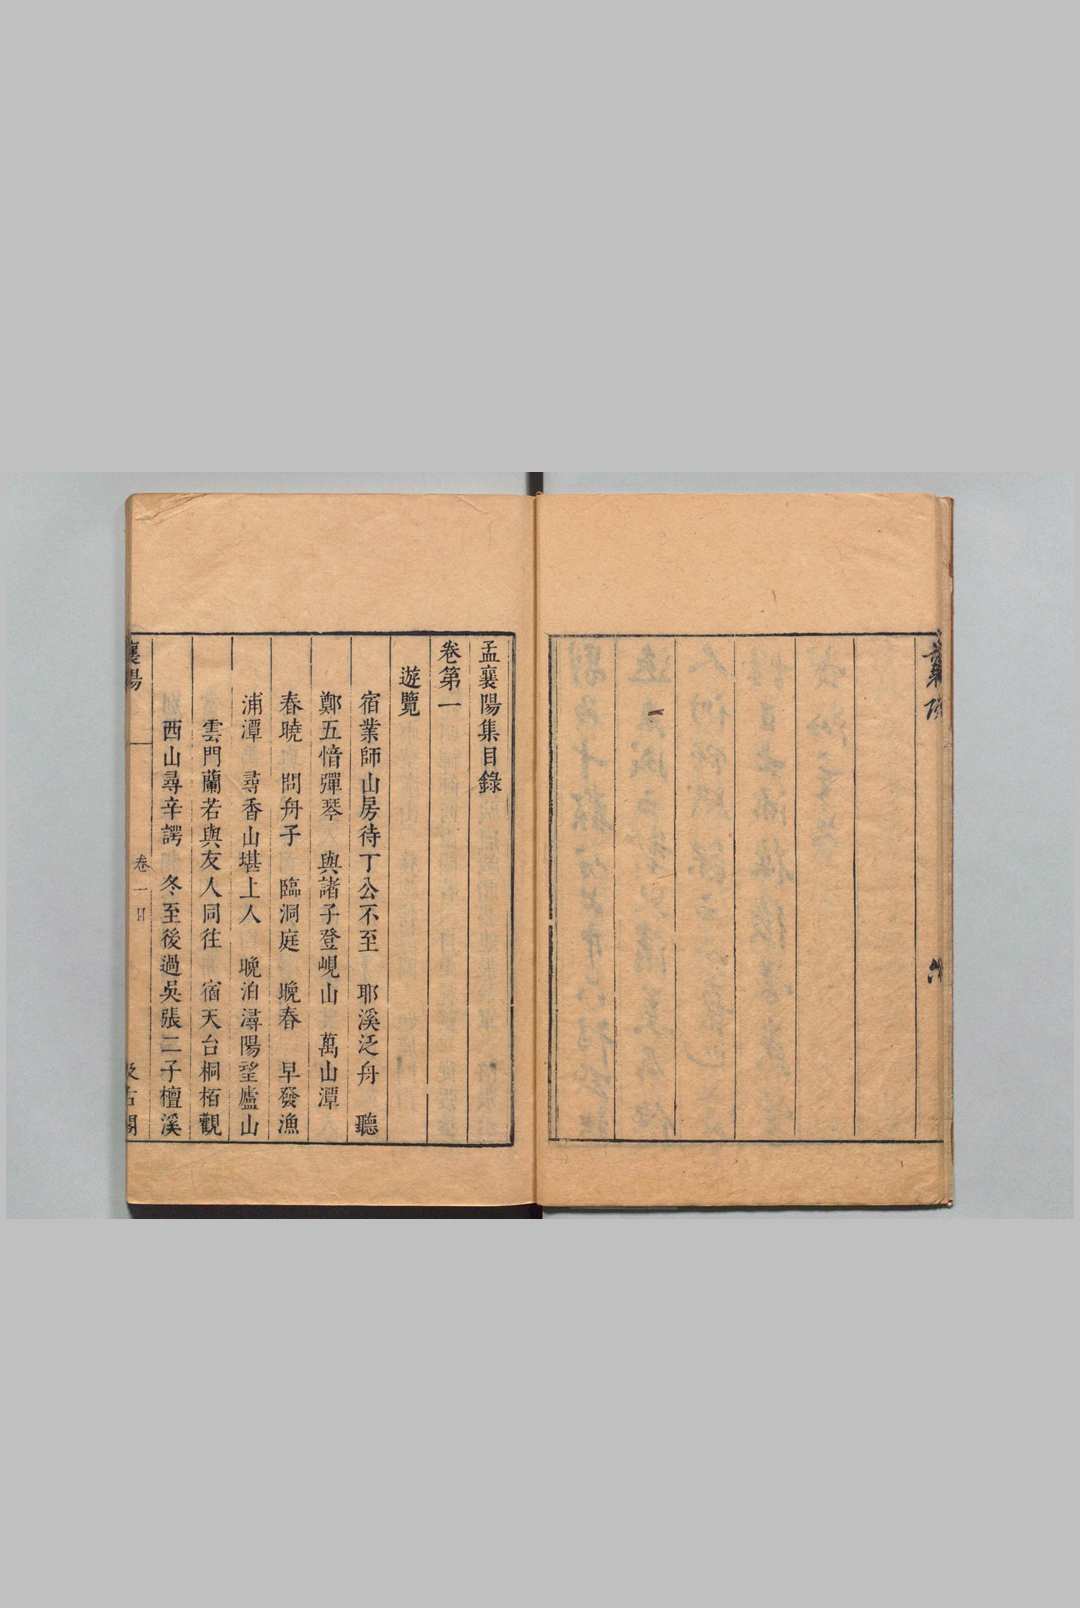 孟襄陽集目錄
卷第一
遊覽
宿業師山房待丁公不至 耶溪泛舟 聽
鄭五愔彈琴 與諸子登峴山 萬山潭
春曉 問舟子 臨洞庭 晚春 早發漁
浦潭 尋香山堪上人 晚泊潯陽望廬山
雲門蘭若與友人同往 宿天台桐栢觀
西山尋辛諤 冬至後過吳張二子檀溪
襄陽 卷一目 汲古閣